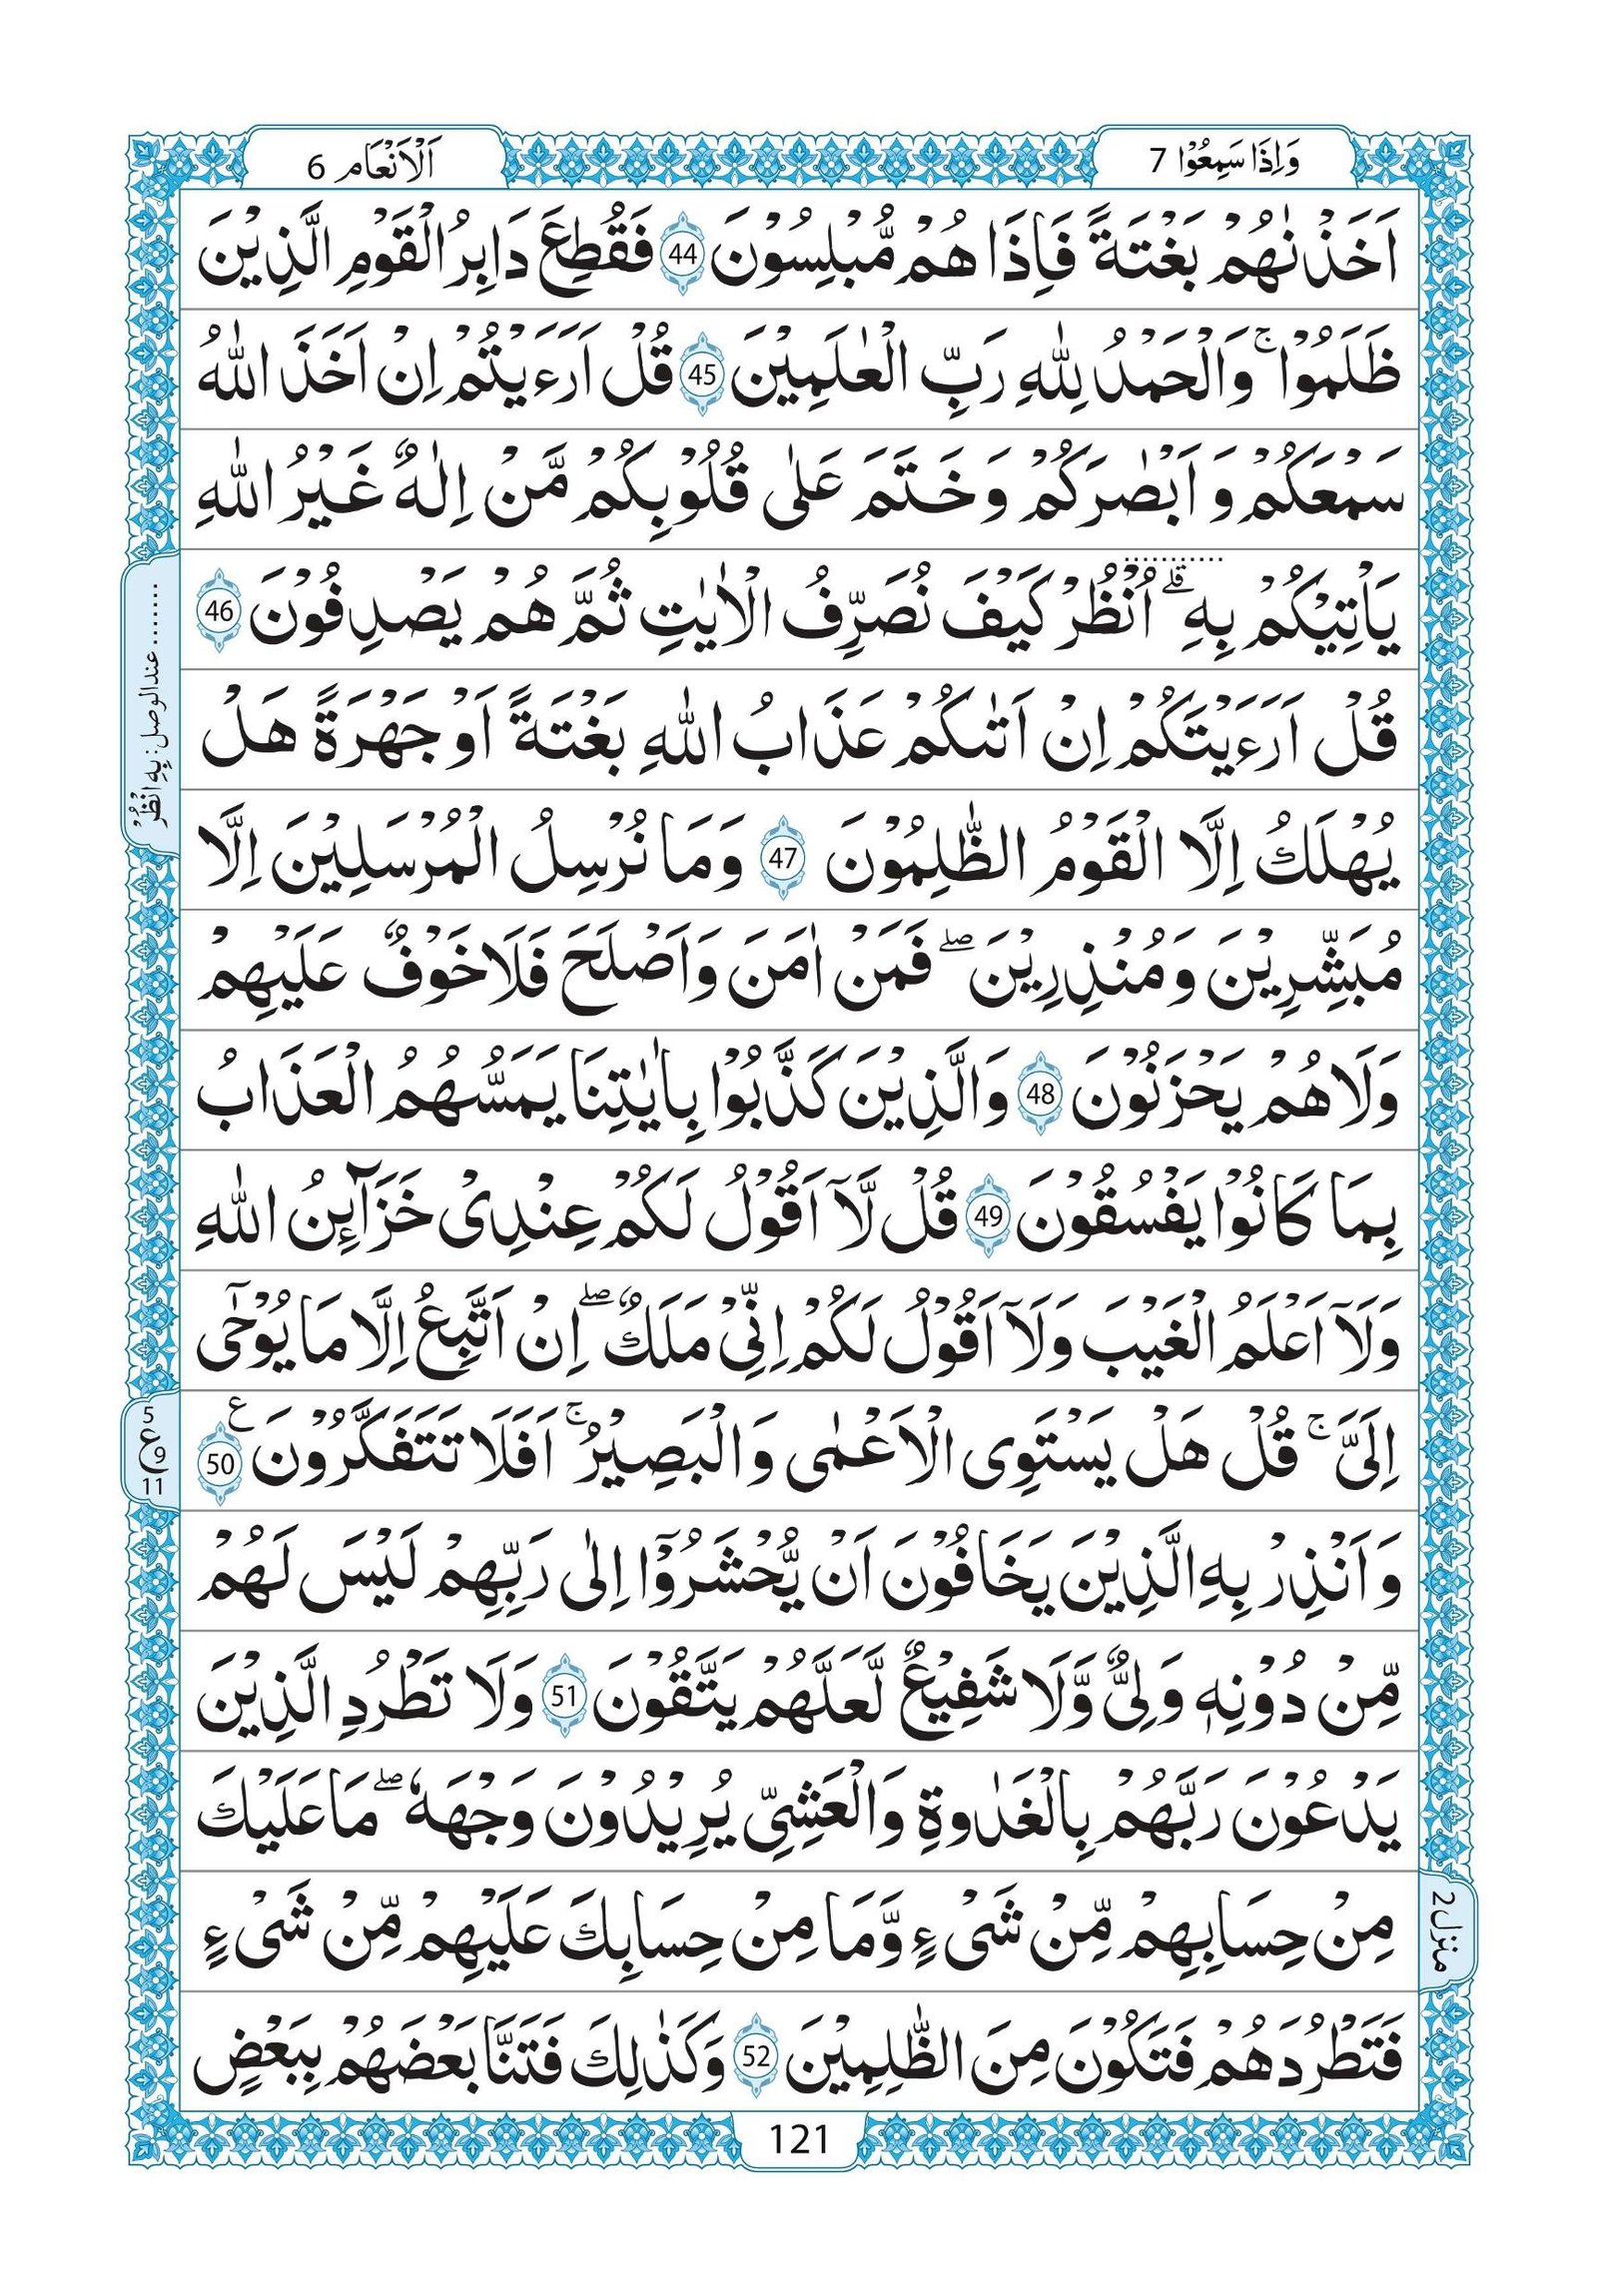 وَاِذَا سَمِعُوْا 7
اَلْاَنْعَام 6
اَخَذْنٰهُمْ بَغْتَةً فَاِذَا هُمْ مُّبْلِسُوْنَ 44 فَقُطِعَ دَابِرُ الْقَوْمِ الَّذِيْنَ
ظَلَمُوْا ۚ وَالْحَمْدُ لِلّٰهِ رَبِّ الْعٰلَمِيْنَ 45 قُلْ اَرَءَيْتُمْ اِنْ اَخَذَ اللّٰهُ
سَمْعَكُمْ وَ اَبْصٰرَكُمْ وَ خَتَمَ عَلٰى قُلُوْبِكُمْ مَّنْ اِلٰهٌ غَيْرُ اللّٰهِ
يَاْتِيْكُمْ بِهِ ۗ اُنْظُرْ كَيْفَ نُصَرِّفُ الْاٰيٰتِ ثُمَّ هُمْ يَصْدِفُوْنَ 46
قُلْ اَرَءَيْتَكُمْ اِنْ اَتٰىكُمْ عَذَابُ اللّٰهِ بَغْتَةً اَوْ جَهْرَةً هَلْ
يُهْلَكُ اِلَّا الْقَوْمُ الظّٰلِمُوْنَ 47 وَمَا نُرْسِلُ الْمُرْسَلِيْنَ اِلَّا
مُبَشِّرِيْنَ وَمُنْذِرِيْنَ ۖ فَمَنْ اٰمَنَ وَاَصْلَحَ فَلَا خَوْفٌ عَلَيْهِمْ
وَلَا هُمْ يَحْزَنُوْنَ 48 وَالَّذِيْنَ كَذَّبُوْا بِاٰيٰتِنَا يَمَسُّهُمُ الْعَذَابُ
بِمَا كَانُوْا يَفْسُقُوْنَ 49 قُلْ لَّآ اَقُوْلُ لَكُمْ عِنْدِىْ خَزَآئِنُ اللّٰهِ
وَلَآ اَعْلَمُ الْغَيْبَ وَلَآ اَقُوْلُ لَكُمْ اِنِّىْ مَلَكٌ ۖ اِنْ اَتَّبِعُ اِلَّا مَا يُوْحٰٓى
اِلَىَّ ۚ قُلْ هَلْ يَسْتَوِى الْاَعْمٰى وَالْبَصِيْرُ ۚ اَفَلَا تَتَفَكَّرُوْنَ ع 50
وَ اَنْذِرْ بِهِ الَّذِيْنَ يَخَافُوْنَ اَنْ يُّحْشَرُوْٓا اِلٰى رَبِّهِمْ لَيْسَ لَهُمْ
مِّنْ دُوْنِهٖ وَلِىٌّ وَّلَا شَفِيْعٌ لَّعَلَّهُمْ يَتَّقُوْنَ 51 وَلَا تَطْرُدِ الَّذِيْنَ
يَدْعُوْنَ رَبَّهُمْ بِالْغَدٰوةِ وَالْعَشِىِّ يُرِيْدُوْنَ وَجْهَهٗ ۖ مَا عَلَيْكَ
مِنْ حِسَابِهِمْ مِّنْ شَىْءٍ وَّمَا مِنْ حِسَابِكَ عَلَيْهِمْ مِّنْ شَىْءٍ
فَتَطْرُدَهُمْ فَتَكُوْنَ مِنَ الظّٰلِمِيْنَ 52 وَكَذٰلِكَ فَتَنَّا بَعْضَهُمْ بِبَعْضٍ
121
عندالوصل: بِهِ انْظُرْ
5
ع 9
11
منزل 2